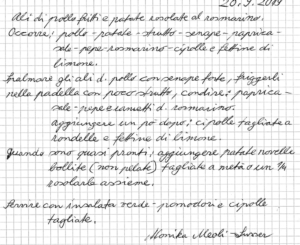 20.9.2019
Ali di pollo fritti e patate rosolate al rosmarino.
Occorre: pollo - patate - strutto - senape - paprica -
sale - pepe - rosmarino - cipolle e fettine di
limone.
Spalmare gli ali d. pollo con senape forte, friggerli
nella padella con poco strutto, condire: paprica -
sale - pepe e rametti d. rosmarino.
aggiungere un pò dopo: cipolle tagliate a
rondelle e fettine di limone.
Quando sono quasi pronti, aggiungere patate novelle
bollite (non pelate) tagliate a metà o un ¼
rosolarle assieme.
Servire con insalata verde - pomodori e cipolle
tagliate.
Monika Meoli